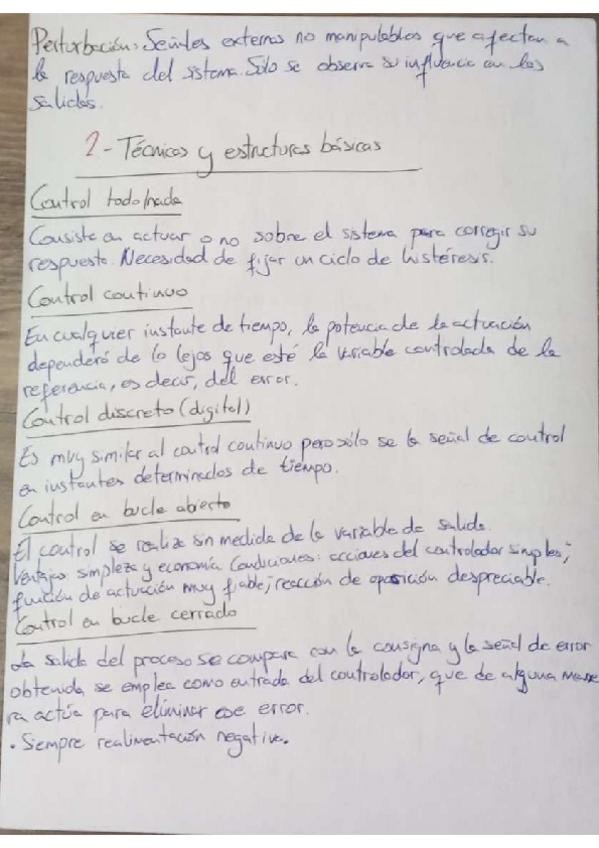 Perturbación: Señales externas no manipulables que afectan a
la respuesta del sistema. Sólo se observa su influencia en las
salidas.
2.- Técnicas y estructuras básicas
Control todo/nada
Consiste en actuar o no sobre el sistema para corregir su
respuesta. Necesidad de fijar un ciclo de histéresis.
Control continuo
En cualquier instante de tiempo, la potencia de la actuación
dependerá de lo lejos que esté la variable controlada de la
referencia, es decir, del error.
Control discreto (digital)
Es muy similar al control continuo pero sólo se la señal de control
en instantes determinados de tiempo.
Control en bucle abierto
El control se realiza sin medida de la variable de salida.
Ventajas: simpleza y economía Condiciones: acciones del controlador simples;
función de actuación muy fiable; reacción de oposición despreciable.
Control en bucle cerrado
La salida del proceso se compara con la consigna y la señal de error
obtenida se emplea como entrada del controlador, que de alguna mane
ra actúa para eliminar ese error.
• Siempre realimentación negativa.